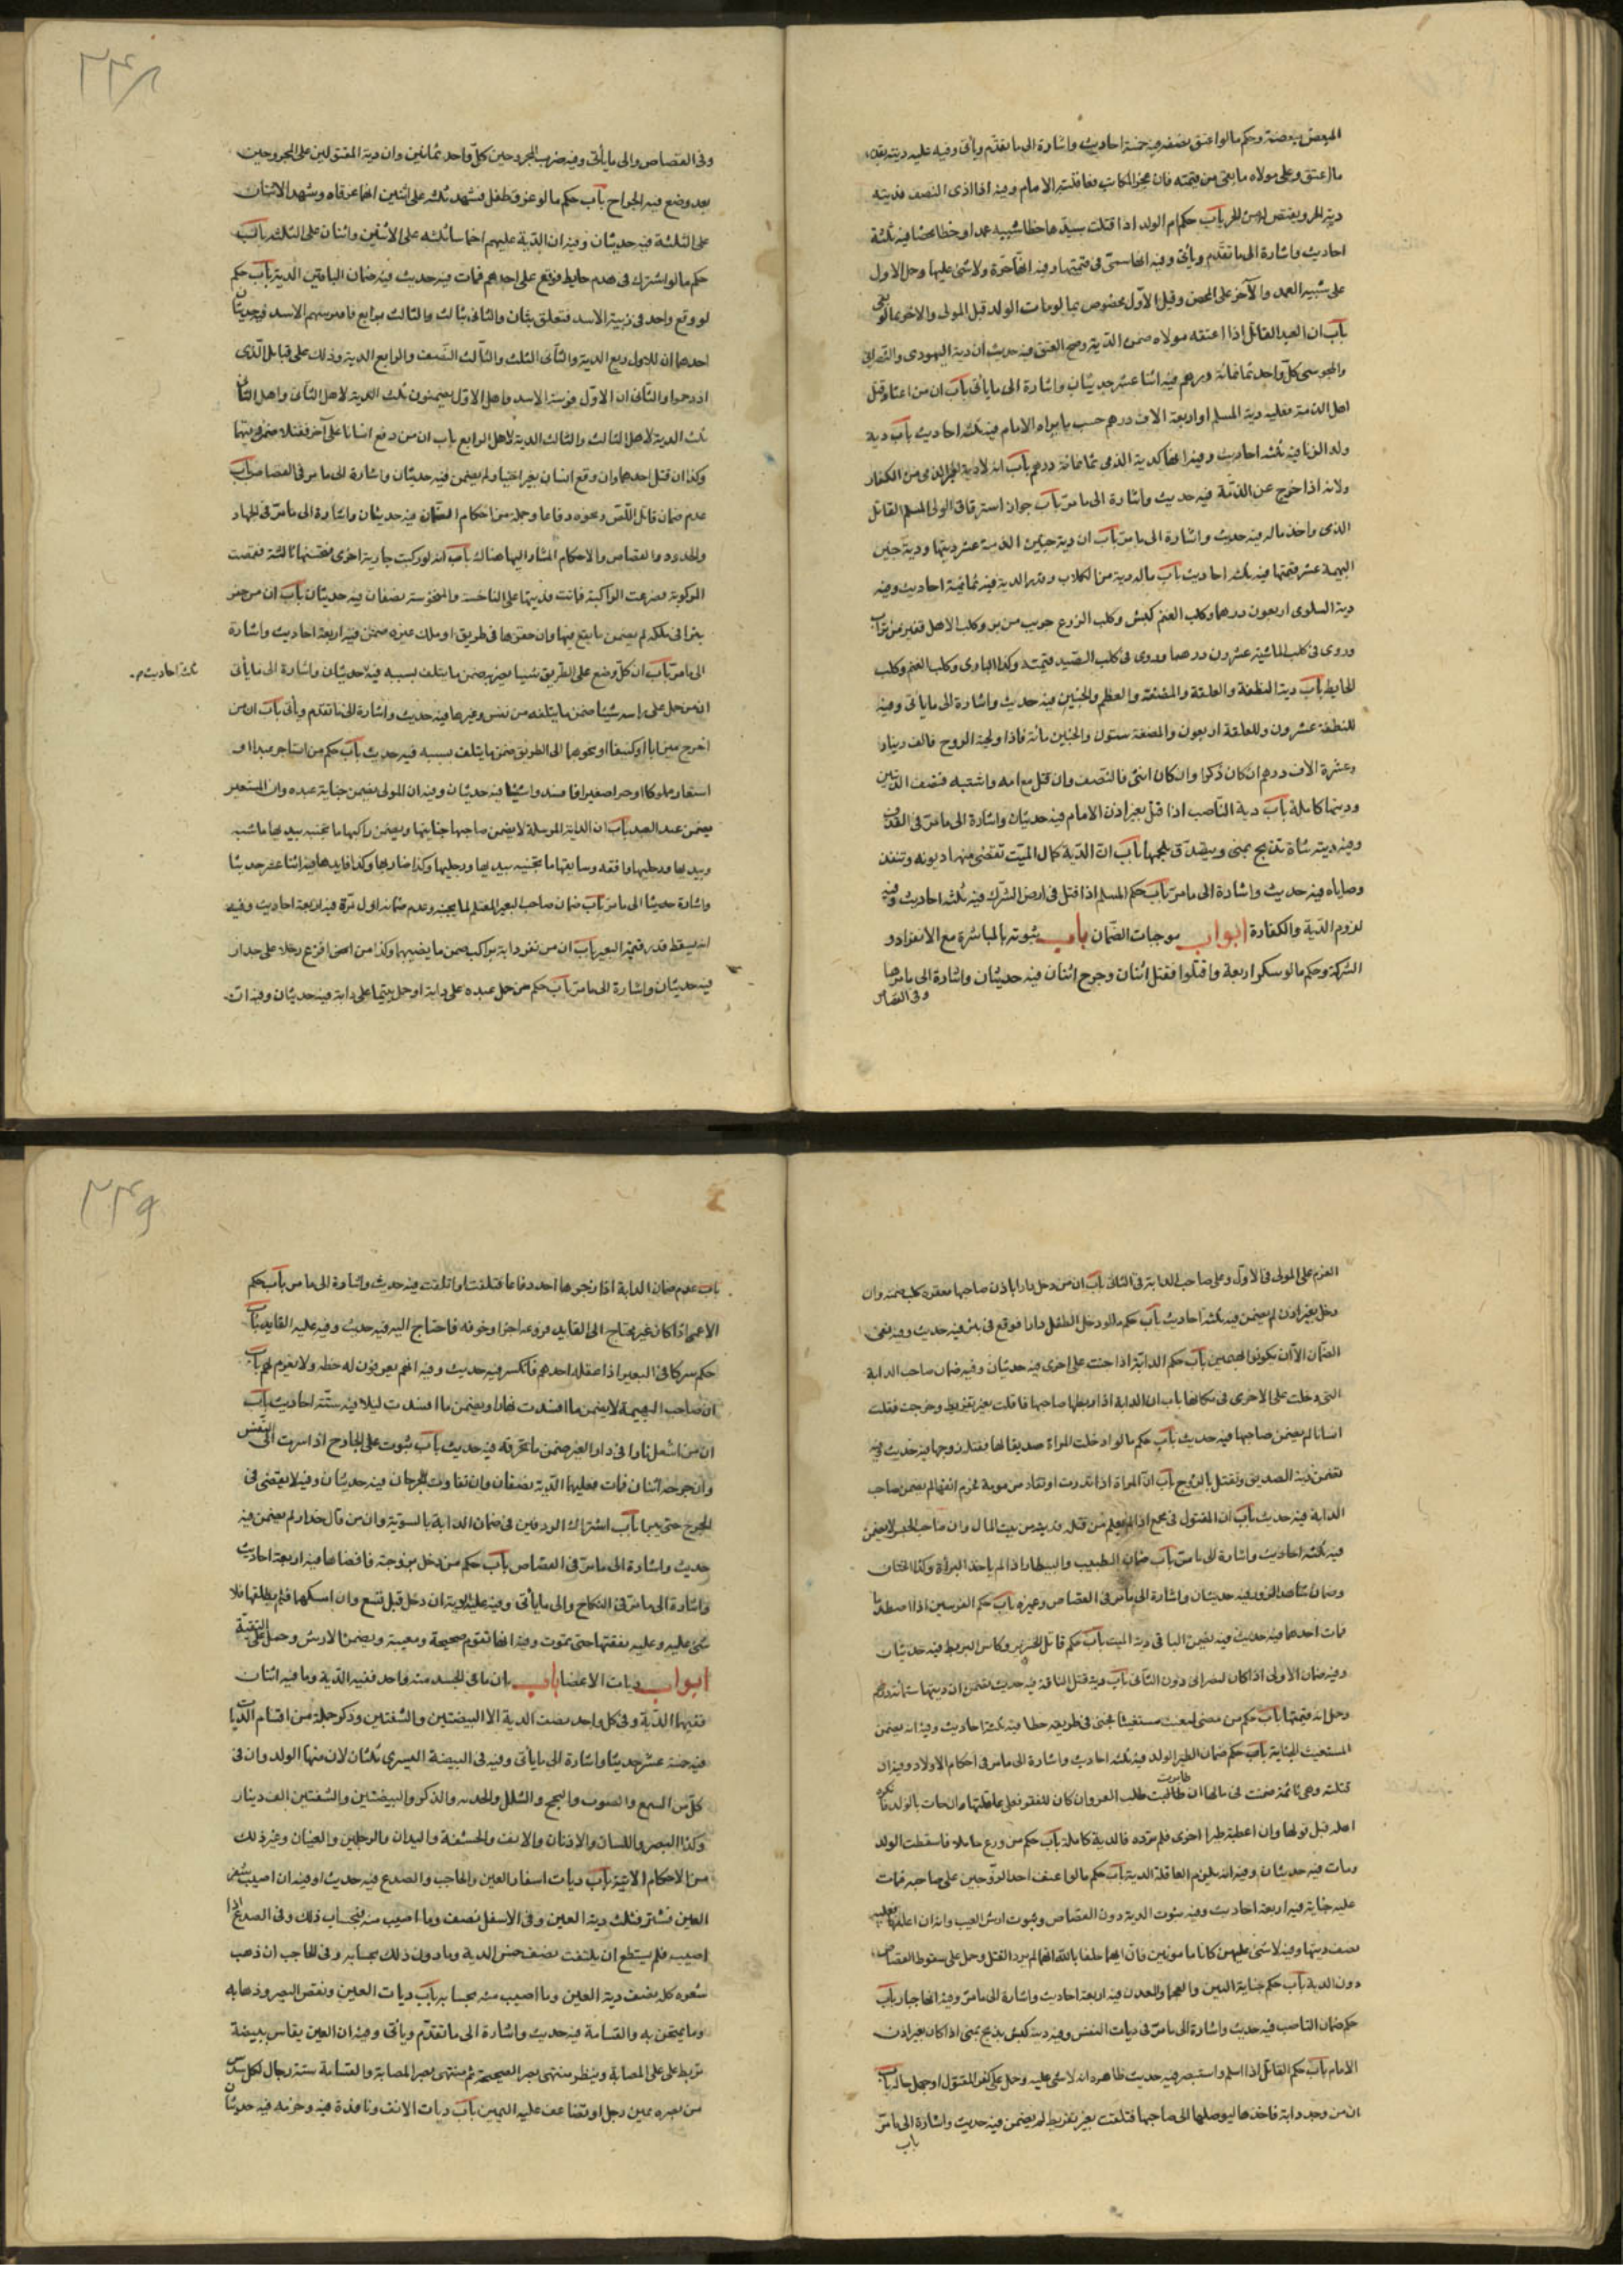 المبعض ببعضه وحكم مالو اعتق نصفه فيه خمسة احاديث واشارة الى ما تقدّم ويأتى وفيه عليه ديته بقدر
ما اعتق وعلى مولاه ما بقى من قيمته فان عجز المكاتب فعاقلته الامام وفيه اذا ادى النصف فديته
دية الحر ويقتص له من الحر باب حكم ام الولد اذا قتلت سيدها خطأ شبيه عمد او خطأ محضا فيه ثلثة
احاديث واشارة الى ما تقدّم ويأتى وفيه انها سعت فى قيمتها وفيه انها حرّة ولا شئ عليها وحمل الاول
على شبيه العمد والآخر على المحض وقيل الاوّل مخصوص بما لو مات الولد قبل المولى والاخر بما لو بقى
باب ان العبد القاتل اذا اعتقه مولاه ضمن الدّية وصح العتق فيه حديث ان دية اليهودى والنصرانى
والمجوسى كلّ واحد ثمانمائة درهم فيه اثنا عشر حديثا واشارة الى ما يأتى باب ان من اعتاد قتل
اهل الذمة فعليه دية المسلم او اربعة الاف درهم حسب ما يراه الامام فيه ثلثه احاديث باب دية
ولد الزنا فيه ثلثه احاديث وفيه انها كدية الذمى ثمانمائة درهم باب انه لا دية لغير الذمى من الكفار
ولا له اذا خرج عن الذمّة فيه حديث واشارة الى ما مرّ باب جواز استرقاق الولى المسلم القاتل
الذمى واخذ ماله فيه حديث واشارة الى ما مرّ باب ان دية جنين الذمية عشر ديتها ودية جنين
البهيمة عشر قيمتها فيه ثلثه احاديث باب ماله دية من الكلاب وقدر الدية فيه ثمانية احاديث وفيه
دية السلوقى اربعون درهما وكلب الغنم كبش وكلب الزرع جريب من بر وكلب الاهل قفيز من تراب
وروى فى كلب الماشية عشرون درهما وروى فى كلب الصّيد قيمته وكذا البازى وكلب الغنم وكلب
الحايط باب دية النطفة والعلقة والمضغة والعظم والجنين فيه حديث واشارة الى ما يأتى وفيه
للنطفة عشرون وللعلقة اربعون والمضغة ستون والجنين مائة فاذا ولجته الروح فالف دينار
وعشرة الاف درهم ان كان ذكرا وان كان انثى فالنّصف وان قتل مع امه واشتبه فنصف الديتين
وديتها كاملة باب دية النّاصب اذا قتل بغير اذن الامام فيه حديثان واشارة الى ما مرّ فى القذف
وفيه ديته شاة تذبح بمنى ويتصدّق بلحمها باب انّ الدّية كمال الميّت تقضى منها ديونه وتنفذ
وصاياه فيه حديث واشارة الى ما مرّ باب حكم المسلم اذا قتل فى ارض الشّرك فيه ثلثه احاديث وفيه
لزوم الدّية والكفارة ابواب موجبات الضّمان باب ثبوته بالمباشرة مع الانفراد و
الشركة وحكم مالو سكر اربعة واقتلوا فقتل اثنان وجرح اثنان فيه حديثان واشارة الى ما مرّ هنا
وفى القصاص
٢٣٨
وفى القصاص والى ما يأتى وفيه ضرب المجروحين كلّ واحد ثمانين وان دية المقتولين على المجروحين
بعد وضع فيه الجراح باب حكم مالو غرق طفل فشهد ثلثه على اثنين انهما غرقاه وشهد الاثنان
على الثلثة فيه حديثان وفيه ان الدّية عليهم اخماسا ثلثه على الاثنين واثنان على الثلثه باب
حكم مالو اشترك فى هدم حايط فوقع على احدهم فمات فيه حديث فيه ضمان الباقين الدية باب حكم
لو وقع واحد فى زبية الاسد فتعلق بثان والثانى بثالث والثالث برابع فافترسهم الاسد فيه حديثان
احدهما ان للاول ربع الدية والثانى الثلث والثالث النّصف والرابع الدية وذلك على قبايل الّذى
ازدحموا والثانى ان الاوّل فريسة الاسد واهل الاوّل يضمنون ثلث الدية لاهل الثانى واهل الثانى
ثلث الدية لاهل الثالث والثالث الدية لاهل الرابع باب ان من دفع انسانا على آخر فقتلا ضمن ديتهما
وكذا ان قتل احدهما وان وقع انسان بغير اختيار لم يضمن فيه حديثان واشارة الى ما مر فى القصاص باب
عدم ضمان قاتل اللّص ونحوه دفاعا وجملة من احكام الضمان فيه حديثان واشارة الى ما مرّ فى الجهاد
والحدود والقصاص والاحكام المشار اليها هناك باب انه لو ركبت جارية اخرى فنخستها ثالثة فقمصت
المركوبة فصرعت الراكبة فماتت فديتها على الناخسة والمنخوسة نصفان فيه حديثان باب ان من حفر
بئرا فى ملكه لم يضمن ما يقع فيها وان حفرها فى طريق او ملك غيره ضمن فيه اربعة احاديث واشارة
الى ما مرّ باب ان كل من وضع على الطّريق شيئا يضرّ به ضمن ما يتلف بسببه فيه حديثان واشارة الى ما يأتى
ثلثه احاديث م
ان من حمل على راسه شيئا ضمن ما يتلفه من نفس وغيرها فيه حديث واشارة الى ما تقدم ويأتى باب ان من
اخرج ميزابا او كنيفا او نحوهما الى الطريق ضمن ما يتلف بسببه فيه حديث باب حكم من استاجر عبدا او
استعار مملوكا او حرا صغيرا فافسد واشيئا فيه حديثان وفيه ان المولى يضمن جناية عبده وان المستعير
يضمن عبد الصيد باب ان الدابة المرسلة لا يضمن صاحبها جنايتها ويضمن راكبها ما تجنيه بيديها ماشية
وبيديها ورجليها واقفة وسايقها ما تجنيه بيديها ورجليها وكذا ضاربها وكذا قايدها فيه اثنا عشر حديثا
واشارة الى ما مرّ باب ضمان صاحب البعير المغتلم لما يجنيه وعدم ضمانه اول مرّة فيه اربعة احاديث وفيه
انه يسقط قدر قيمة البعير باب ان من نفر دابة براكب ضمن ما يصيبها وكذا من افزع رجلا على جدار
فيه حديثان واشارة الى ما مرّ باب حكم من حمل عبده على دابة او حمل يتيما على دابة فيه حديثان وفيه ان
الغرم على المولى فى الاوّل وعلى صاحب الدابة فى الثانى باب ان من دخل دارا باذن صاحبها فعقره كلب ضمنه وان
دخل بغير اذن لم يضمن فيه ثلثه احاديث باب حكم مالو دخل الطفل دارا فوقع فى بئر فيه حديث وفيه نفى
الضّمان الاّ ان يكونوا متهمين باب حكم الدابّة اذا جنت على اخرى فيه حديثان وفيه ضمان صاحب الدابة
التى دخلت على الاخرى فى مكانها باب ان الدابة اذا ربطها صاحبها فافلتت بغير تفريط وخرجت فقتلت
انسانا لم يضمن صاحبها فيه حديث باب حكم مالو ادخلت المراة صديقا لها فقتله زوجها فيه حديث وفيه
تضمن دية الصديق وتقتل بالزوج باب انّ المراة اذا نذرت ان تقاد مزمومة فخرم انفها لم يضمن صاحب
الدابة فيه حديث باب ان المقتول فى مجمع اذا لم يعلم من قتله فديته من بيت المال وان صاحب الجسر لا يضمن
فيه ثلثه احاديث واشارة الى ما مرّ باب ضمان الطبيب والبيطار اذا لم ياخذ البراة وكذا الختان
وضمان شاهد الزور فيه حديثان واشارة الى ما مرّ فى القصاص وغيره باب حكم الفرسين اذا اصطدما
فمات احدهما فيه حديث فيه تضمين الباقى دية الميت باب حكم قاتل الخنزير وكاسر البربط فيه حديثان
وفيه ضمان الاولى اذا كان لنصرانى دون الثانى باب دية قتل الناقة فيه حديث
وحمل انه قيمتها باب حكم من مضى ليغيث مستغيثا فجنى فى طريقه خطا فيه ثلثه احاديث وفيه انه يضمن
المستغيث الجناية باب حكم ضمان الظئر الولد فيه ثلثه احاديث واشارة الى ما مر فى احكام الاولاد وفيه ان
قتلته وهى نائمة ضمنت فى مالها ان ظايرت طلب العز وان كان للفقر فعلى عاقلتها وان جات بالولد فانكره
اهله قبل قولها وان اعطته ظئرا اخرى فلم ترده فالدية كاملة باب حكم من روع حاملا فاسقطت الولد
ومات فيه حديثان وفيه انه يلزم العاقلة الدية باب حكم مالو اعنف احد الزوّجين على صاحبه فمات
عليه جناية فيه اربعة احاديث وفيه ثبوت الدية دون القصاص وثبوت ارش العيب
نصف ديتها وفيه لا شئ عليهن كانا مامونين فان اتهما حلفا بالله انهما لم يردا القتل وحمل على سقوط القصاص
دون الدية باب حكم جناية البئر والعجما والمعدن فيه اربعة احاديث واشارة الى ما مرّ وفيه انها جبار باب
حكم ضمان الناصب فيه حديث واشارة الى ما مرّ فى ديات النفس وفيه ديته كبش يذبح بمنى اذا كان بغير اذن
الامام باب حكم القاتل اذا اسلم واستبصر فيه حديث ظاهره انه لا شئ عليه وحمل على كفر المقتول او جهل حاله باب
ان من وجد دابة فاخذها ليوصلها الى صاحبها فتلفت بغير تفريط لم يضمن فيه حديث واشارة الى ما مرّ
باب
٢٣٩
باب عدم ضمان الدابة اذا زجرها احد دفاعا فتلفت او اتلفت فيه حديث واشارة الى ما مر باب حكم
الاعمى اذا كان غير محتاج الى القايد فروعه اخر او خوفه فاحتاج اليه فيه حديث وفيه عليه القايد باب
حكم شركا فى البعير اذا عقله احدهم فانكسر فيه حديث وفيه انهم يعرفون له حظه ولا يغرم لهم باب
ان صاحب البهيمة لا يضمن ما افسدت نهارا ويضمن ما افسدت ليلا فيه ستّة احاديث باب
ان من اشعل نارا فى دار الغير ضمن ما تحرقه فيه حديث باب ثبوت على الجارح اذا سرت الى النّفس
وان جرحه اثنان فمات فعليهما الدّية نصفان وان تفاوت الجرحان فيه حديثان وفيه لا يقتص فى
الجروح حتى يبرا باب اشتراك الرديفين فى ضمان الدابة بالسوّية وان من قال حذار لم يضمن فيه
حديث واشارة الى ما مرّ فى القصاص باب حكم من دخل بزوجته فافضاها فيه اربعة احاديث
واشارة الى ما مرّ فى النكاح والى ما يأتى وفيه عليه الدية ان دخل قبل تسع وان امسكها فلم يطلقها فلا
شئ عليه وعليه نفقتها حتى تموت وفيه انها تقوم صحيحة ومعيبة ويضمن الارش وحمل على التقيّة
ابواب ديات الاعضا باب ان ما فى الجسد منه واحد ففيه الدّية وما فيه اثنان
ففيهما الدّية وفى كل واحد نصف الدية الا البيضتين والشفتين وذكر جملة من اقسام الدّيات
فيه خمسة عشر حديثا واشارة الى ما يأتى وفيه فى البيضة اليسرى ثلثان لان منها الولد وان فى
كلّ من السمع والصوت والبحح والشلل والحدب والذكر والبيضتين والشفتين الف دينار
وكذا البصر واللسان والاذنان والانف والحشفة واليدان والرجلين والعينان وغير ذلك
من الاحكام الاتية باب ديات اشفار العين والحاجب والصدغ فيه حديث وفيه ان اصيب شفر
العين فشتر فثلث دية العين وفى الاسفل نصف وما اصيب منه فبحساب ذلك وفى الصدغ اذا
اصيب فلم يستطع ان يلتفت نصف خمس الدية وما دون ذلك بحسابه وفى الحاجب ان ذهب
شعره كله نصف دية العين وما اصيب منه بحسابه باب ديات العين ونقص البصر وذهابه
وما يمتحن به والقسامة فيه حديث واشارة الى ما تقدّم ويأتى وفيه ان العين يقاس ببيضة
تربط على المصابة وينظر منتهى بصر الصحيحة ثم منتهى بصر المصابة والقسامة ستة رجال لكل سدس
من بصره يمين رجل او تضاعف عليه اليمين باب ديات الانف ونافذة فيه وخرمه فيه حديثان